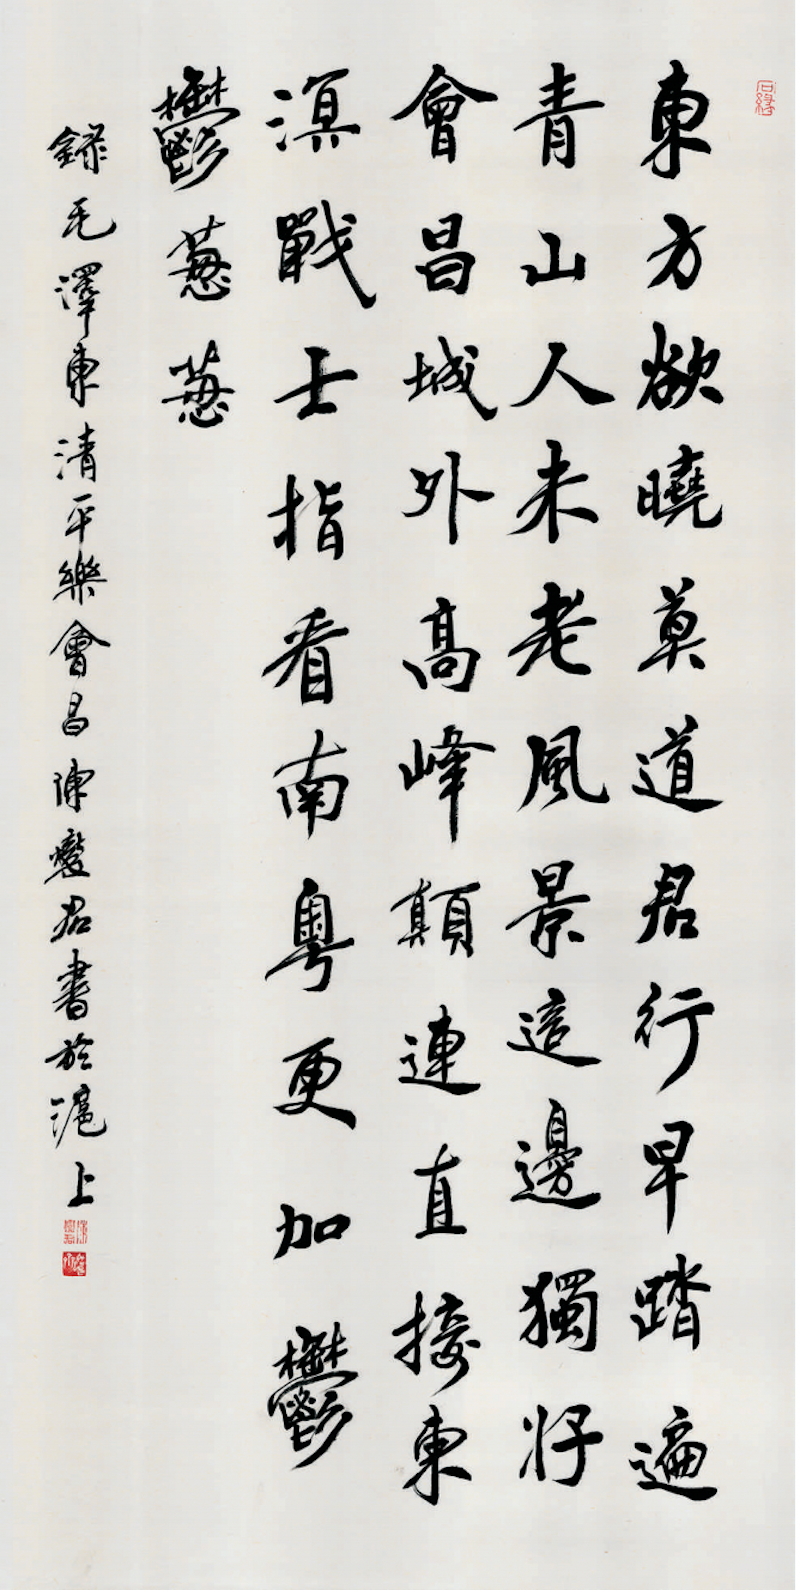 東方欲曉莫道君行早踏遍
青山人未老風景這邊獨好
會昌城外高峰顛連直接東
溟戰士指看南粵更加鬱
鬱蔥蔥
錄毛澤東清平樂會昌陳燮君書於滬上